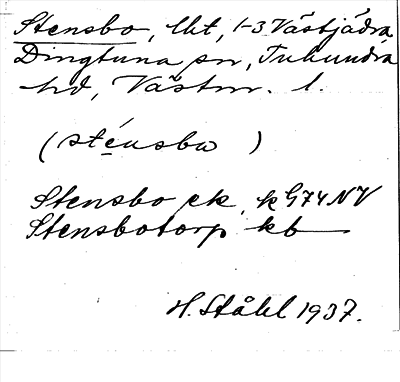 Stensbo, lht, 1-3 Västjädra
Dingtuna sn, Tuhundra
hd, Västm. l.
(sténsbω)
Stensbo ek, k G74NV
Stensbotorp kb
H. Ståhl 1937.